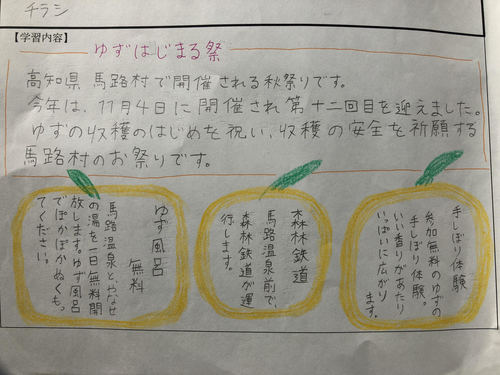 チラシ
【学習内容】
ゆずはじまる祭
高知県 馬路村で開催される秋祭りです。
今年は、11月4日に開催され第十二回目を迎えました。
ゆずの収穫のはじめを祝い、収穫の安全を祈願する
馬路村のお祭りです。
手しぼり体験
参加無料のゆずの
手しぼり体験。
いい香りがあたり
いっぱいに広がり
ます。
森林鉄道
馬路温泉前で、
森林鉄道が運
行します。
ゆず風呂
無料
馬路温泉とやなせ
の湯を一日無料開
放します。ゆず風呂
でぽかぽかぬくも
てください。